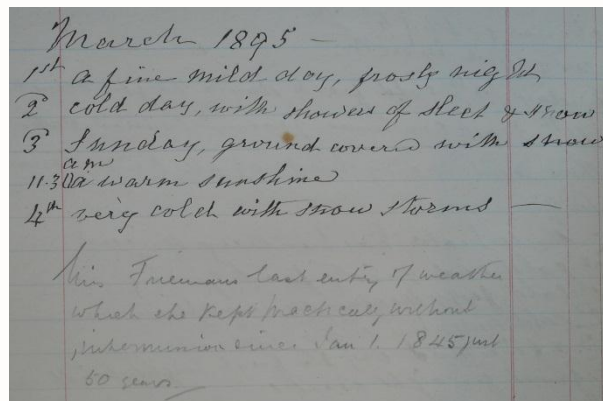 March 1895 —
1st a fine mild day, frosty night
2d cold day, with showers of sleet & snow
3d Sunday, ground covered with snow
am
11.30 a warm sunshine
4th very cold with snow storms —
Miss Friemans last entry of weather
which she kept practically without
intermission since Jan 1. 1845 just
50 years.